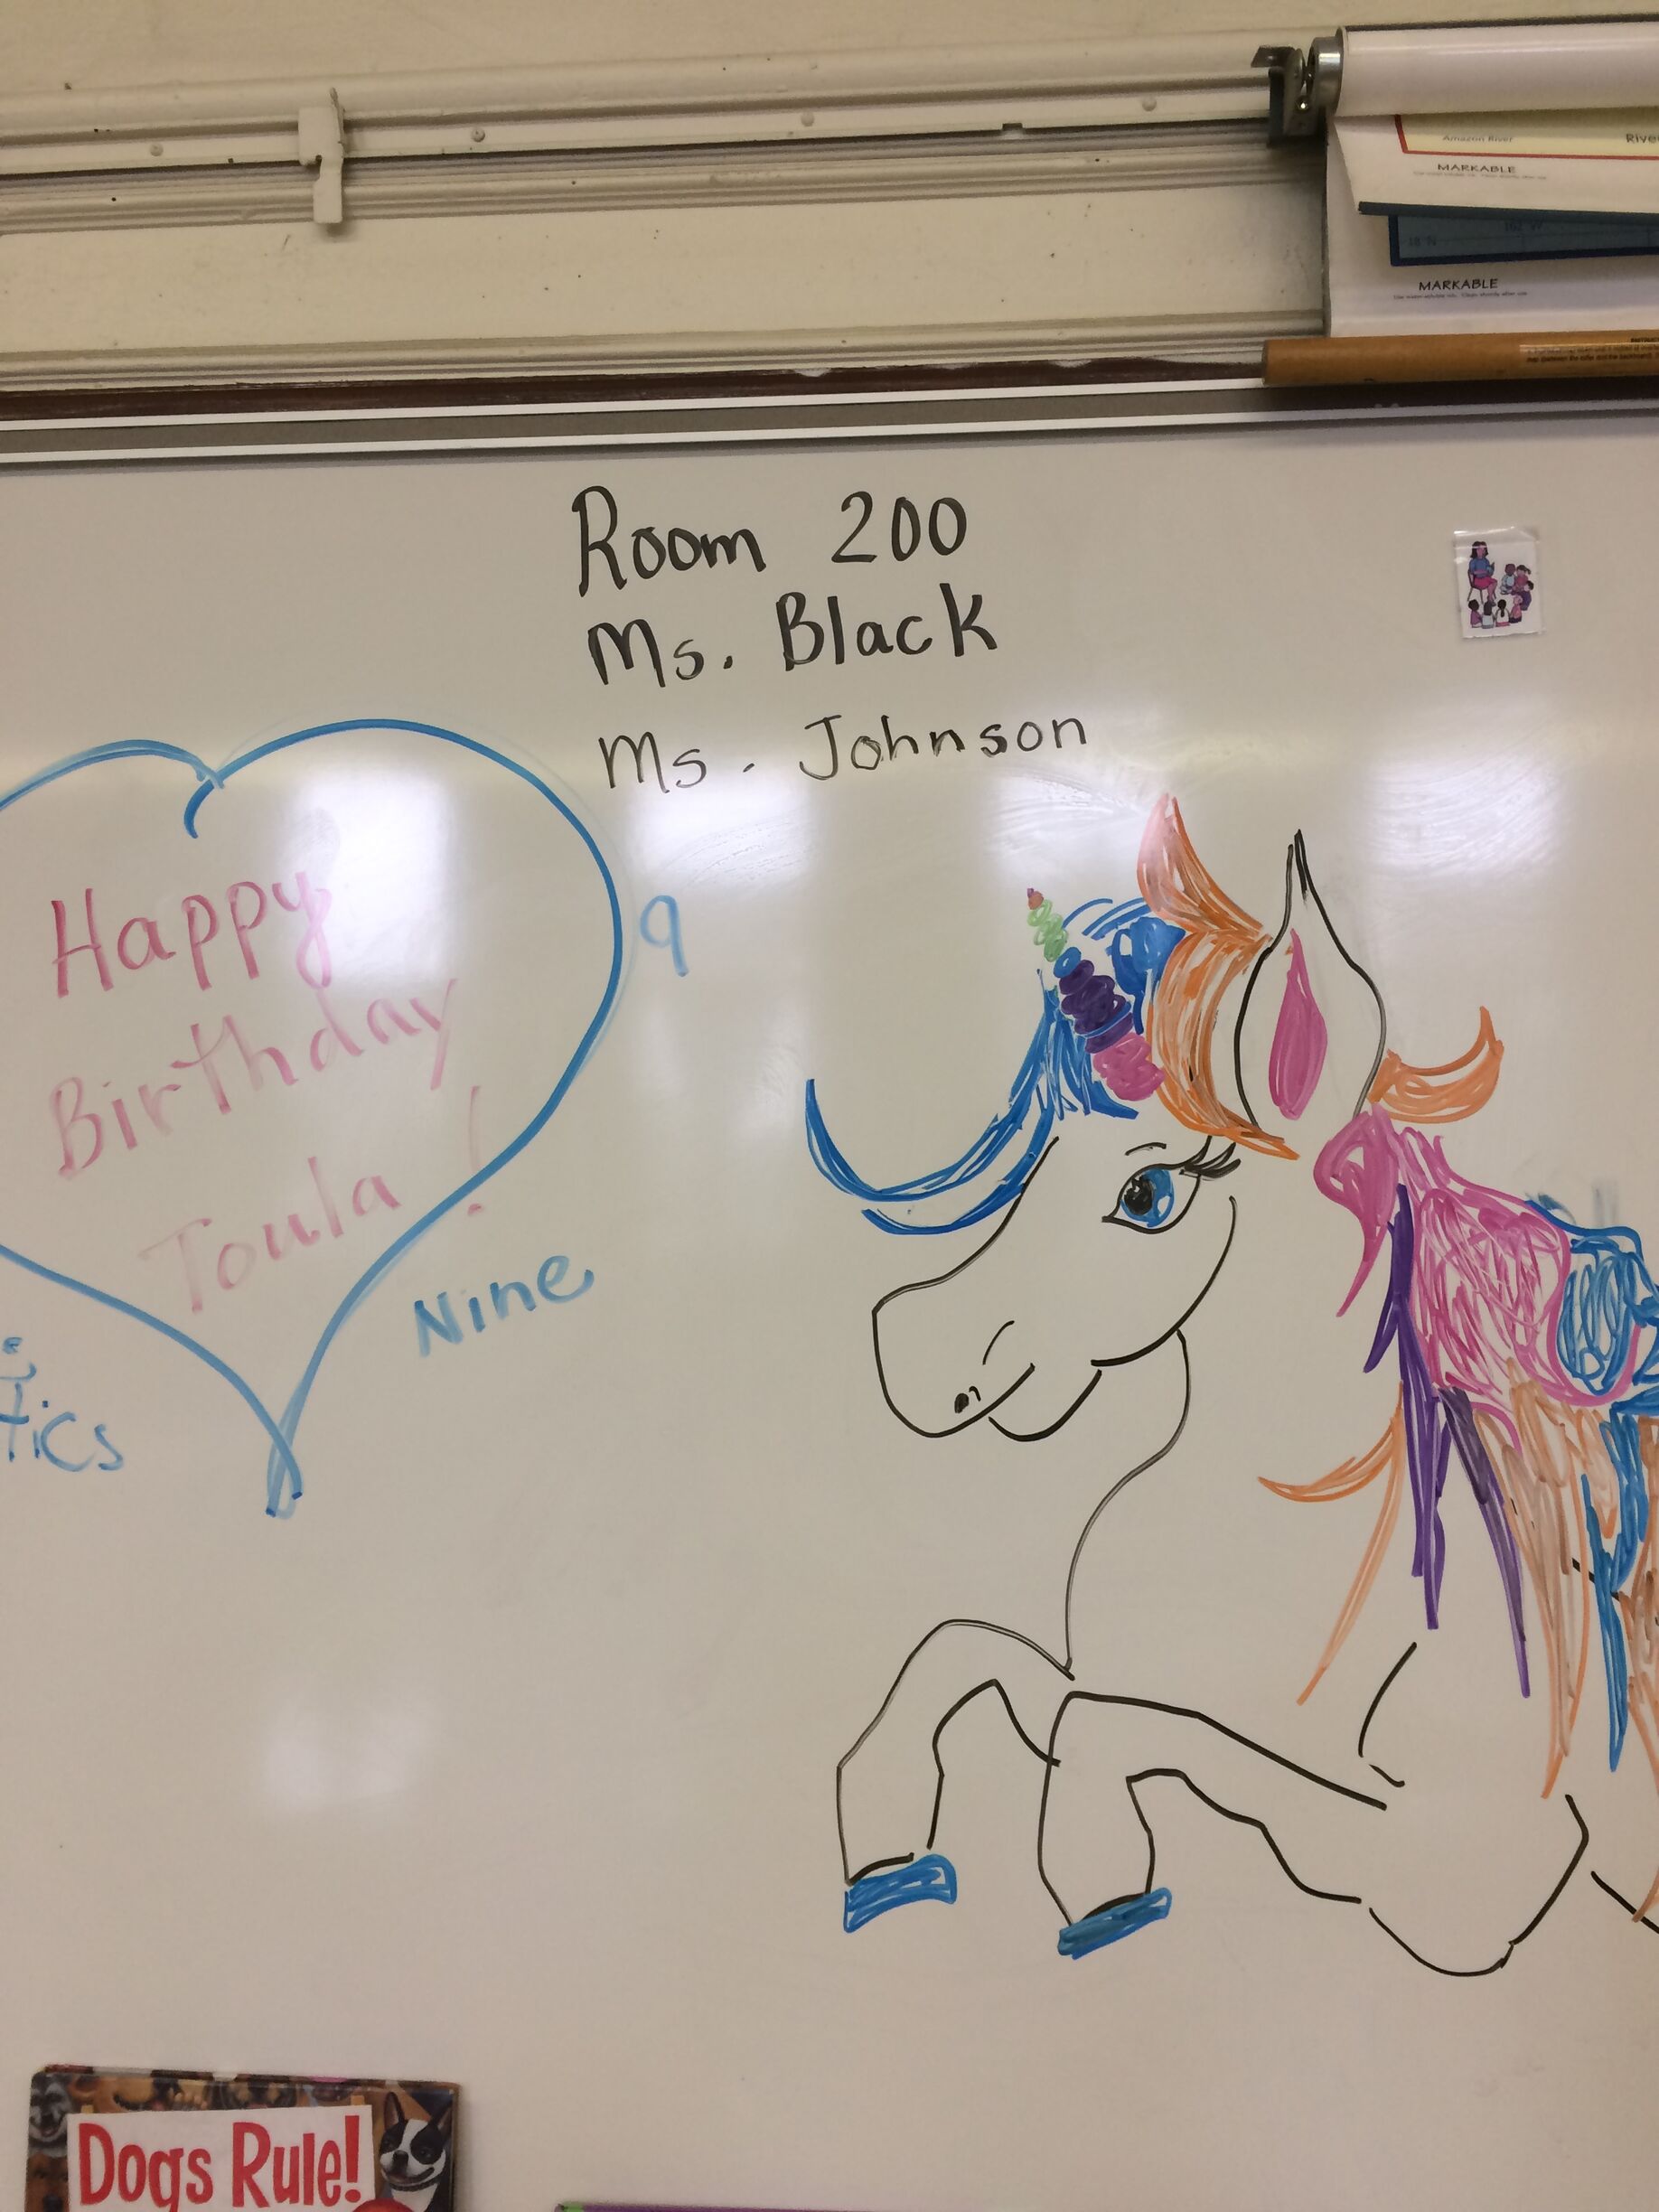 Amazon River
River
MARKABLE
MARKABLE
Room 200
Ms. Black
Ms. Johnson
Happy
Birthday
Toula!
9
Nine
tics
Dogs Rule!